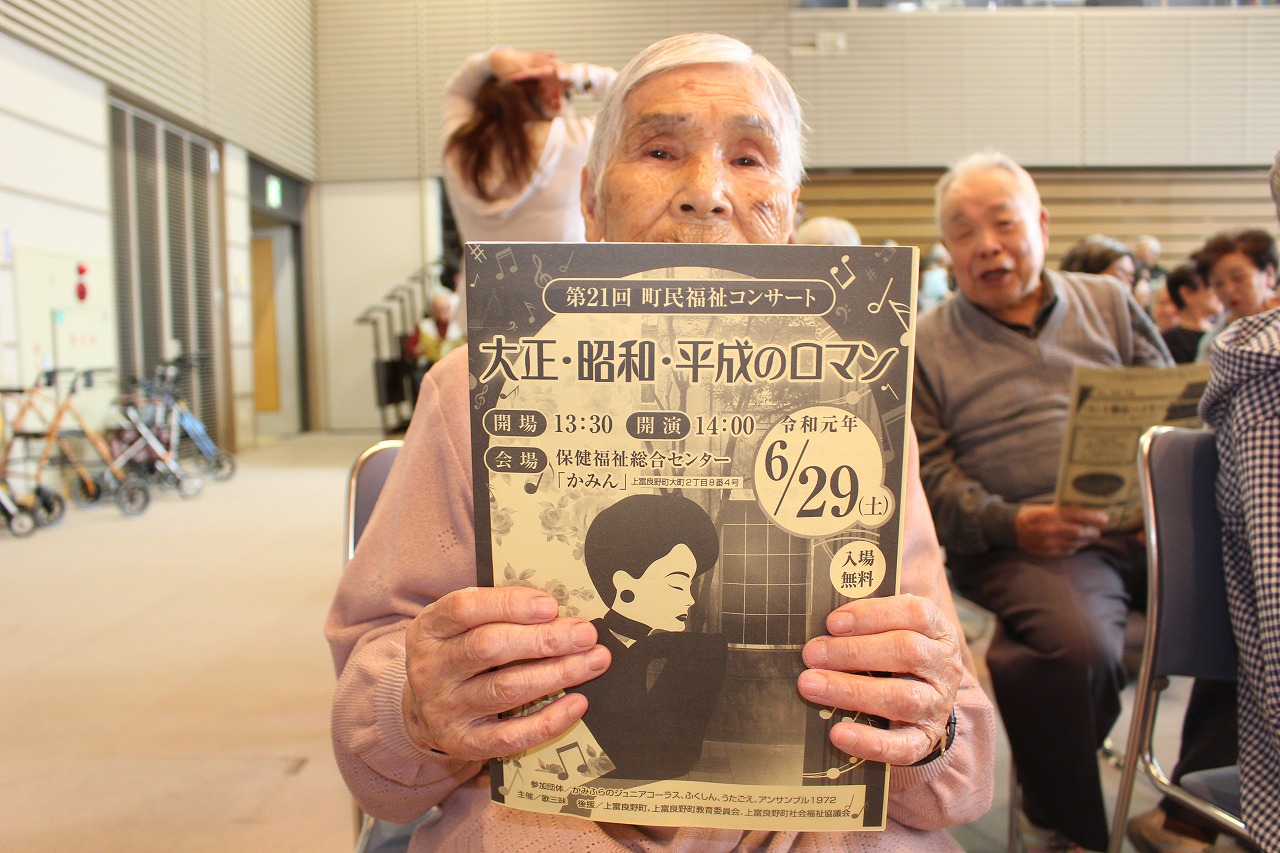 第21回 町民福祉コンサート
大正・昭和・平成のロマン
開場 13:30 開演 14:00
令和元年
6/29(土)
会場 保健福祉総合センター
「かみん」 上富良野町大町2丁目8番4号
入場
無料
参加団体/かみふらのジュニアコーラス、ふくしん、うたごえ、アンサンブル1972
主催/歌三昧 後援/上富良野町、上富良野町教育委員会、上富良野町社会福祉協議会